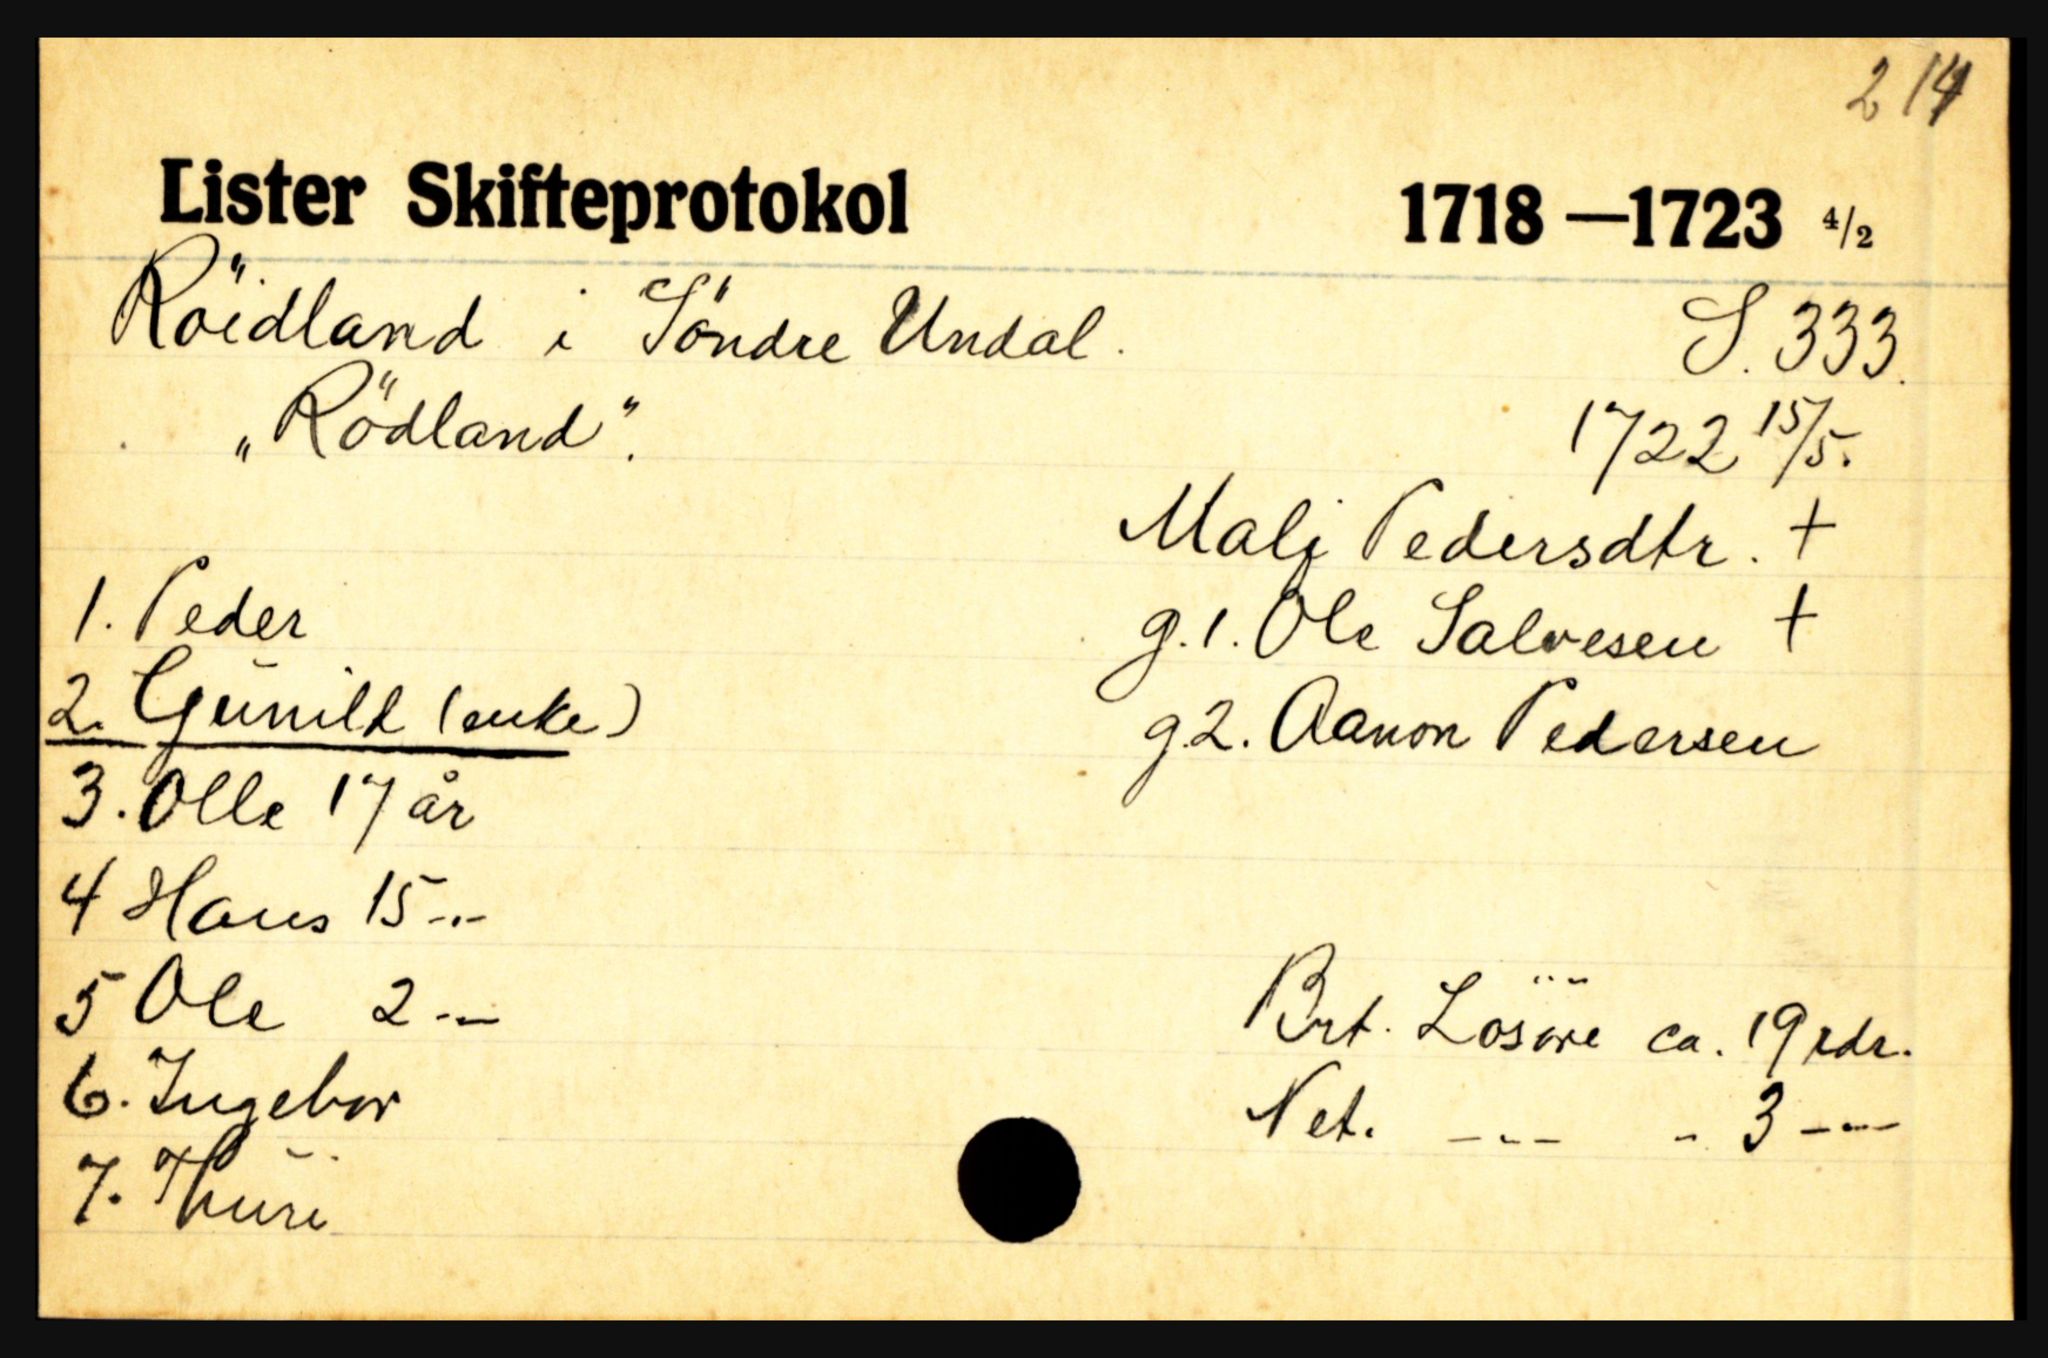 214
Lister Skifteprotokol 1718—1723 4/2
Röidland i Söndre Undal. S. 333.
„Rödland". 1722 15/5.
Mali Pedersdtr. +
1. Peder g.1. Ole Salvesen +
2. Gunild (enke) g.2. Aanon Pedersen
3. Olle 17 år
4 Hans 15 -"-
5 Ole 2 -"- Brt. Lösöre ca. 19 rdr.
6. Ingebor Net. -"- - 3 -"-
7. Thuri